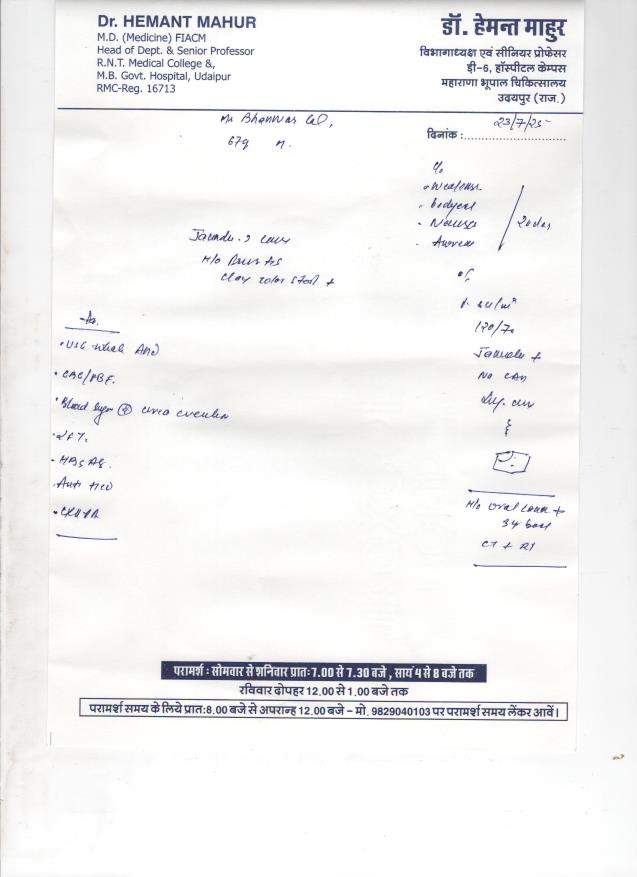 Dr. HEMANT MAHUR
M.D. (Medicine) FIACM
Head of Dept. & Senior Professor
R.N.T. Medical College &,
M.B. Govt. Hospital, Udaipur
RMC-Reg. 16713
डॉ. हेमन्त माहुर
विभागाध्यक्ष एवं सीनियर प्रोफेसर
डी-6, हॉस्पीटल केम्पस
महाराणा भूपाल चिकित्सालय
उदयपुर (राज.)
Mr Bhanwar Lal,
दिनांक : 23/7/25
67y M.
c/o
Weakness
bodyach
Nausea
20 das
Jaundice
H/o
Clay color stool +
o/e
120/70
Jaundice +
USG whole Abd
CBC/PBF.
Blood sugar urea creatin
LFT.
HBsAg.
Anti HCV
CXR PA
H/o oral cancer +
3 y back
CT + RT
परामर्श : सोमवार से शनिवार प्रातः 7.00 से 7.30 बजे , सायं 4 से 8 बजे तक
रविवार दोपहर 12.00 से 1.00 बजे तक
परामर्श समय के लिये प्रातः 8.00 बजे से अपरान्ह 12.00 बजे – मो. 9829040103 पर परामर्श समय लेंकर आवें।